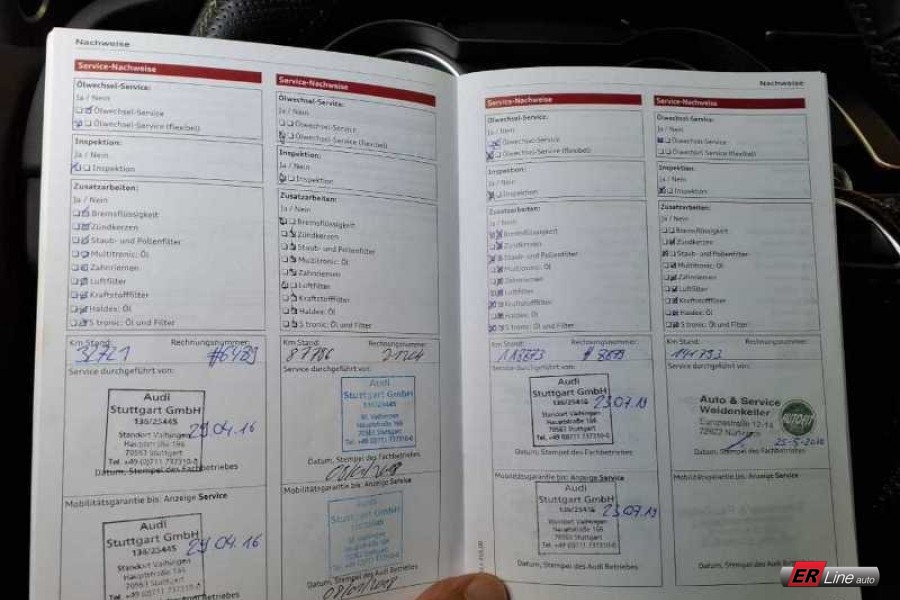 Nachweise
Service-Nachweise
Ölwechsel-Service:
Ja / Nein
Ölwechsel-Service
Ölwechsel-Service (flexibel)
Inspektion:
Ja / Nein
Inspektion
Zusatzarbeiten:
Ja / Nein
Bremsflüssigkeit
Zündkerzen
Staub- und Pollenfilter
Multitronic: Öl
Zahnriemen
Luftfilter
Kraftstofffilter
Haldex: Öl
S tronic: Öl und Filter
Km Stand: Rechnungsnummer:
32721 #6489
Service durchgeführt von:
Audi
Stuttgart GmbH
136/25445
Standort Vaihingen
Hauptstraße 166
70563 Stuttgart
Tel. +49 (0)711 737310-0
29.04.16
Datum, Stempel des Fachbetriebes
Mobilitätsgarantie bis: Anzeige Service
Audi
Stuttgart GmbH
136/25445
Standort Vaihingen
Hauptstraße 166
70563 Stuttgart
Tel. +49 (0)711 737310-0
29.04.16
Service-Nachweise
Ölwechsel-Service:
Ja / Nein
Ölwechsel-Service
Ölwechsel-Service (flexibel)
Inspektion:
Ja / Nein
Inspektion
Zusatzarbeiten:
Ja / Nein
Bremsflüssigkeit
Zündkerzen
Staub- und Pollenfilter
Multitronic: Öl
Zahnriemen
Luftfilter
Kraftstofffilter
Haldex: Öl
S tronic: Öl und Filter
Km Stand: Rechnungsnummer:
87786
Service durchgeführt von:
Audi
Stuttgart GmbH
Vaihingen
Hauptstraße 166
70563 Stuttgart
Datum, Stempel des Fachbetriebes
Mobilitätsgarantie bis: Anzeige Service
Audi
Stuttgart GmbH
Datum, Stempel des Audi Betriebes
Nachweise
Service-Nachweise
Ölwechsel-Service:
Ja / Nein
Ölwechsel-Service
Ölwechsel-Service (flexibel)
Inspektion:
Ja / Nein
Inspektion
Zusatzarbeiten:
Ja / Nein
Bremsflüssigkeit
Zündkerzen
Staub- und Pollenfilter
Multitronic: Öl
Zahnriemen
Luftfilter
Kraftstofffilter
Haldex: Öl
S tronic: Öl und Filter
Km Stand: Rechnungsnummer:
Service durchgeführt von:
Audi
Stuttgart GmbH
136/25416
Standort Vaihingen
Hauptstrasse 166
70563 Stuttgart
Tel. +49 (0)711 737310-0
23.07.19
Datum, Stempel des Fachbetriebes
Mobilitätsgarantie bis: Anzeige Service
Audi
Stuttgart GmbH
136/25416
Standort Vaihingen
Hauptstrasse 166
70563 Stuttgart
Tel. +49 (0)711 737310-0
23.07.19
Datum, Stempel des Audi Betriebes
Service-Nachweise
Ölwechsel-Service:
Ja / Nein
Ölwechsel-Service
Ölwechsel-Service (flexibel)
Inspektion:
Ja / Nein
Inspektion
Zusatzarbeiten:
Ja / Nein
Bremsflüssigkeit
Zündkerzen
Staub- und Pollenfilter
Multitronic: Öl
Zahnriemen
Luftfilter
Kraftstofffilter
Haldex: Öl
S tronic: Öl und Filter
Km Stand: Rechnungsnummer:
Service durchgeführt von:
Auto & Service
Weidenkeller
Datum, Stempel des Fachbetriebes
Mobilitätsgarantie bis: Anzeige Service
Datum, Stempel des Audi
ER Line auto